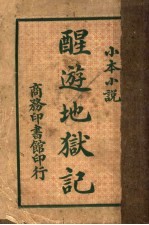 小本小説
醒遊地獄記
商務印書館印行